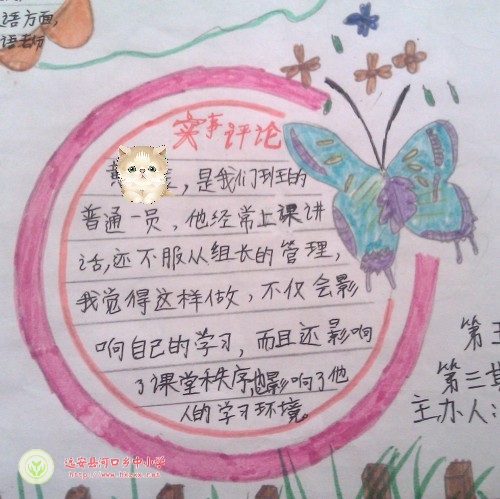 话方面,
实事评论
黄
,是我们班的
普通一员,他经常上课讲
话,还不服从组长的管理,
我觉得这样做,不仅会影
响自己的学习,而且还影响
了课堂秩序也影响了他
人的学习环境。
第三
主办人:
远安县河口乡中小学